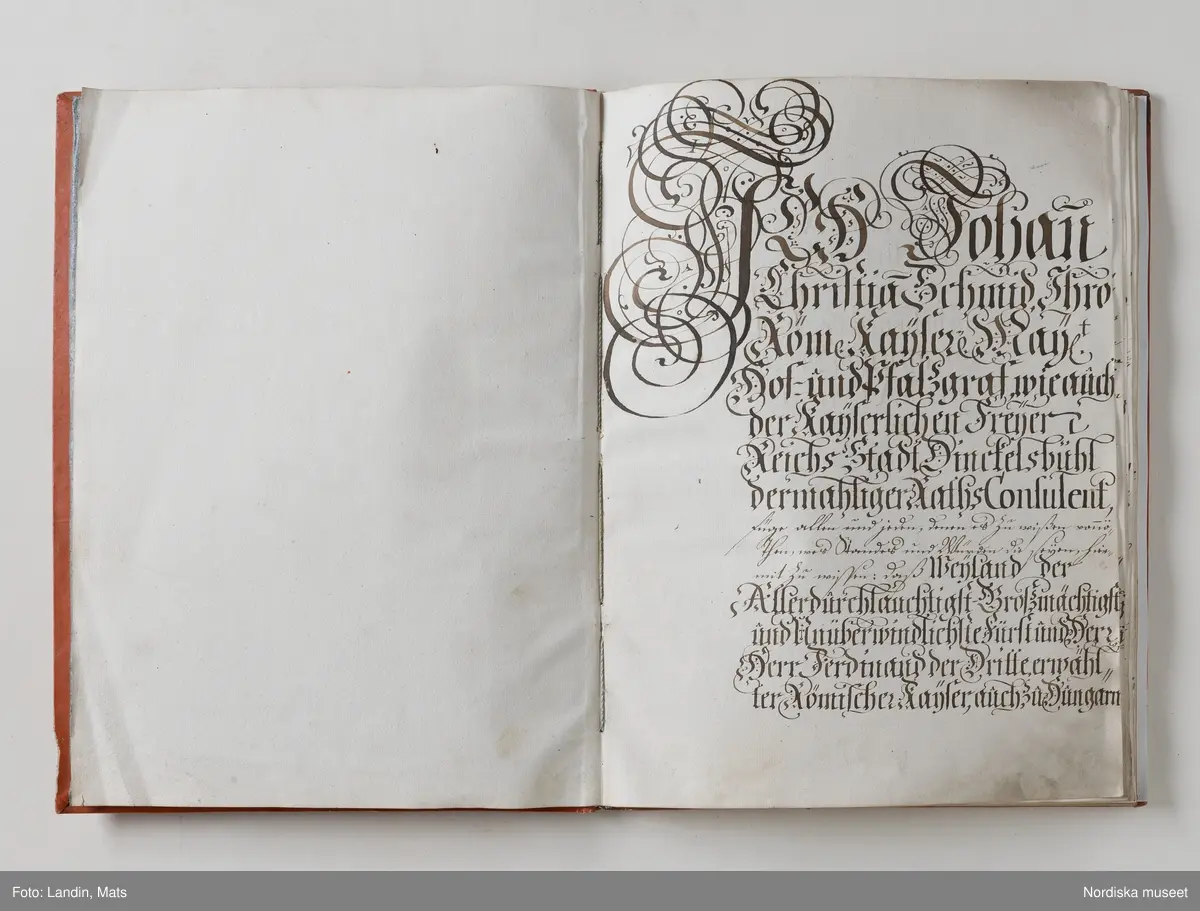 ICH Johañ
Christiã Schmid, Ihro
Röm. Kayser. May.t
Hof- und Pfaltzgraf, wie auch
der Kayserlichen Freyen
Reichs Stadt Dinckelsbühl
dermahliger Raths Consulent,
füge allen und jeden, denen es zu wißen vonnö,
then, wes Standes und Würden die seyen, hie-
mit zu wissen: daß Weyland der
Allerdurchlauchtigst-Großmächtigst
und Unüberwindlichste Fürst und Herr
Herr Ferdinand der Dritte, erwähl„
ter Römischer Kayser, auch zu Hungarn
Foto: Landin, Mats
Nordiska museet